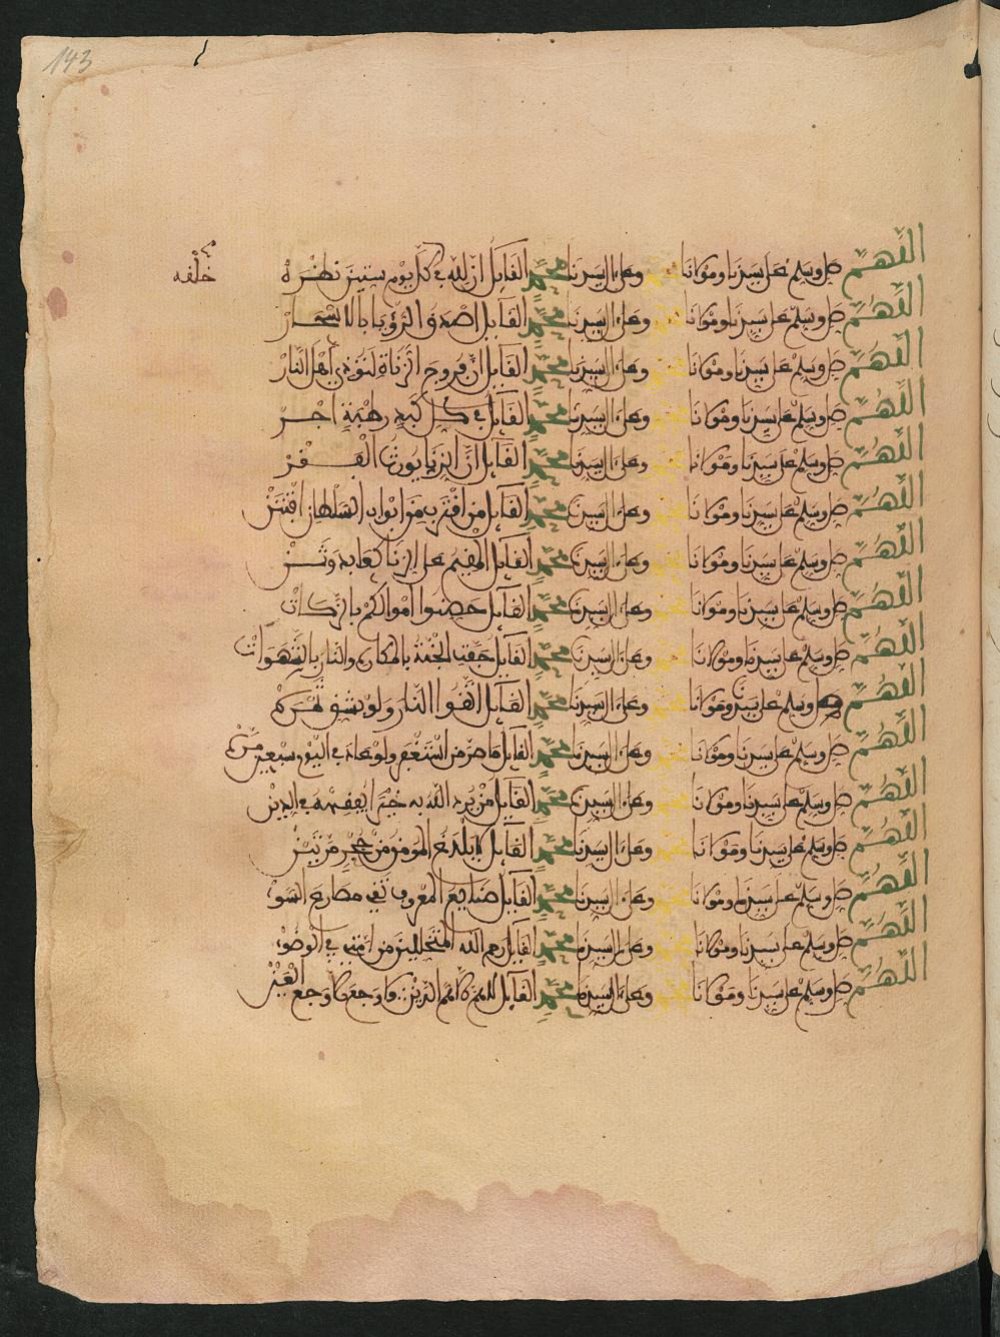 143
خلفه
اللهم صل وسلم على سيدنا ومولانا محمد وعلى ءال سيدنا محمد القايل ان لله في كل يوم ستين نظرة
اللهم صل وسلم على سيدنا ومولانا محمد وعلى ءال سيدنا محمد القايل اصدق الرؤيا بالاسحار
اللهم صل وسلم على سيدنا ومولانا محمد وعلى ءال سيدنا محمد القايل ان فروج الزناة لتؤذي اهل النار
اللهم صل وسلم على سيدنا ومولانا محمد وعلى ءال سيدنا محمد القايل في كل كبد رطبة اجر
اللهم صل وسلم على سيدنا ومولانا محمد وعلى ءال سيدنا محمد القايل ان الزنا يورث الفقر
اللهم صل وسلم على سيدنا ومولانا محمد وعلى ءال سيدنا محمد القايل من اقترب من ابواب السلطان افتتن
اللهم صل وسلم على سيدنا ومولانا محمد وعلى ءال سيدنا محمد القايل المقيم على الزنا كعابد وثن
اللهم صل وسلم على سيدنا ومولانا محمد وعلى ءال سيدنا محمد القايل حصنوا اموالكم بالزكات
اللهم صل وسلم على سيدنا ومولانا محمد وعلى ءال سيدنا محمد القايل حفت الجنة بالمكاره والنار بالشهوات
اللهم صل وسلم على سيدنا ومولانا محمد وعلى ءال سيدنا محمد القايل اتقوا النار ولو بشق تمرة
اللهم صل وسلم على سيدنا ومولانا محمد وعلى ءال سيدنا محمد القايل ما اصر من استغفر ولو عاد في اليوم سبعين مرة
اللهم صل وسلم على سيدنا ومولانا محمد وعلى ءال سيدنا محمد القايل من يرد الله به خيرا يفقهه في الدين
اللهم صل وسلم على سيدنا ومولانا محمد وعلى ءال سيدنا محمد القايل لا يلدغ المومن من جحر مرتين
اللهم صل وسلم على سيدنا ومولانا محمد وعلى ءال سيدنا محمد القايل صنايع المعروف تقي مصارع السوء
اللهم صل وسلم على سيدنا ومولانا محمد وعلى ءال سيدنا محمد القايل رحم الله المتخللين من امتي في الوضوء
اللهم صل وسلم على سيدنا ومولانا محمد وعلى ءال سيدنا محمد القايل لا هم كاهم الدين ولا وجع كاوجع العين